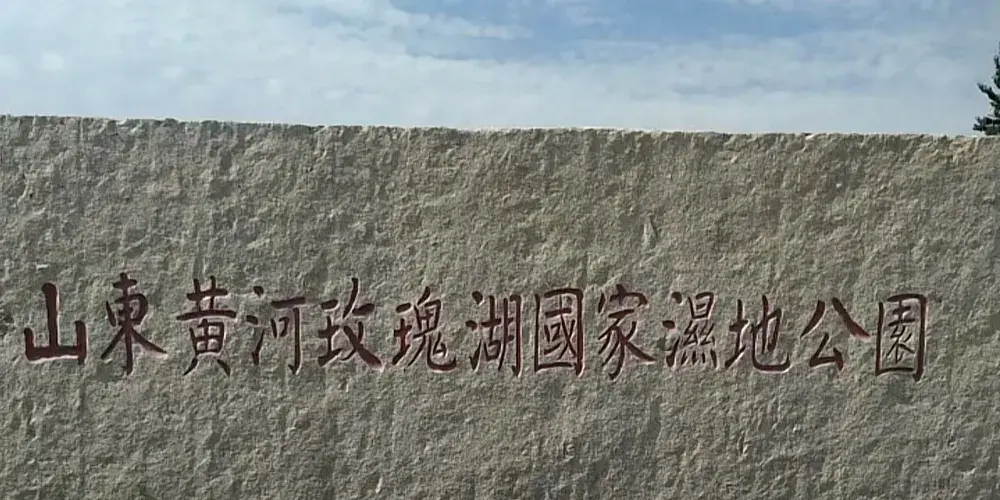 山東黄河玫瑰湖國家濕地公園